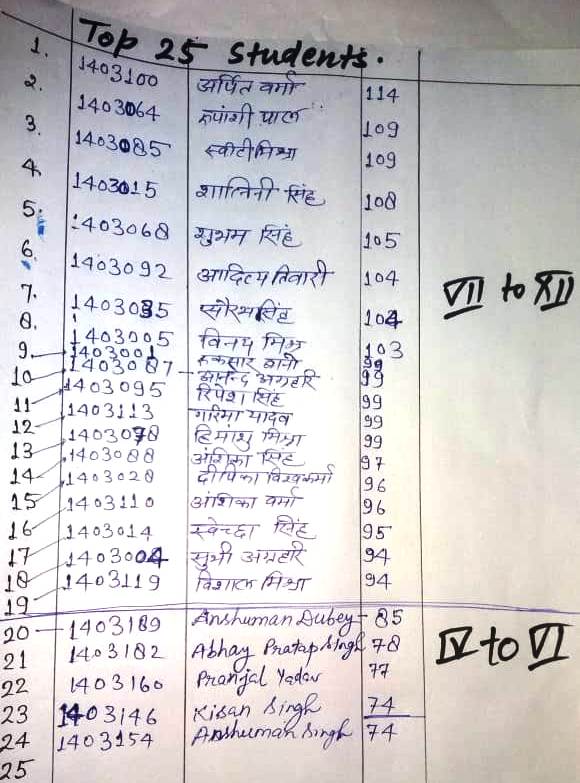 Top 25 Students.
1. 1403100 अर्पित वर्मा 114
2. 1403064 रुपांशी पाल 109
3. 1403085 स्वीटी मिश्रा 109
4. 1403015 शालिनी सिंह 108
5. 1403068 शुभम सिंह 105
6. 1403092 आदित्य तिवारी 104
7. 1403035 सौरभ सिंह 104
8. 1403005 विनय मिश्र 103
9. 1403001 रुकसार बानो 99
10 1403087 आनन्द अग्रहरि 99
11 1403095 रिपेश सिंह 99
12 1403113 गरिमा यादव 99
13 1403078 हिमांशु मिश्रा 99
14 1403088 अंशिका सिंह 97
15 1403028 दीपिका विश्वकर्मा 96
16 1403110 अंशिका वर्मा 96
17 1403014 स्वेच्छा सिंह 95
18 1403004 सुभी अग्रहरि 94
19 1403119 विशाल मिश्रा 94
VII to XII
20 1403189 Anshuman Dubey - 85
21 1403182 Abhay Pratap Singh 78
22 1403160 Pranjal Yadav 77
23 1403146 Kisan Singh 74
24 1403154 Anshuman Singh 74
25
IV to VI